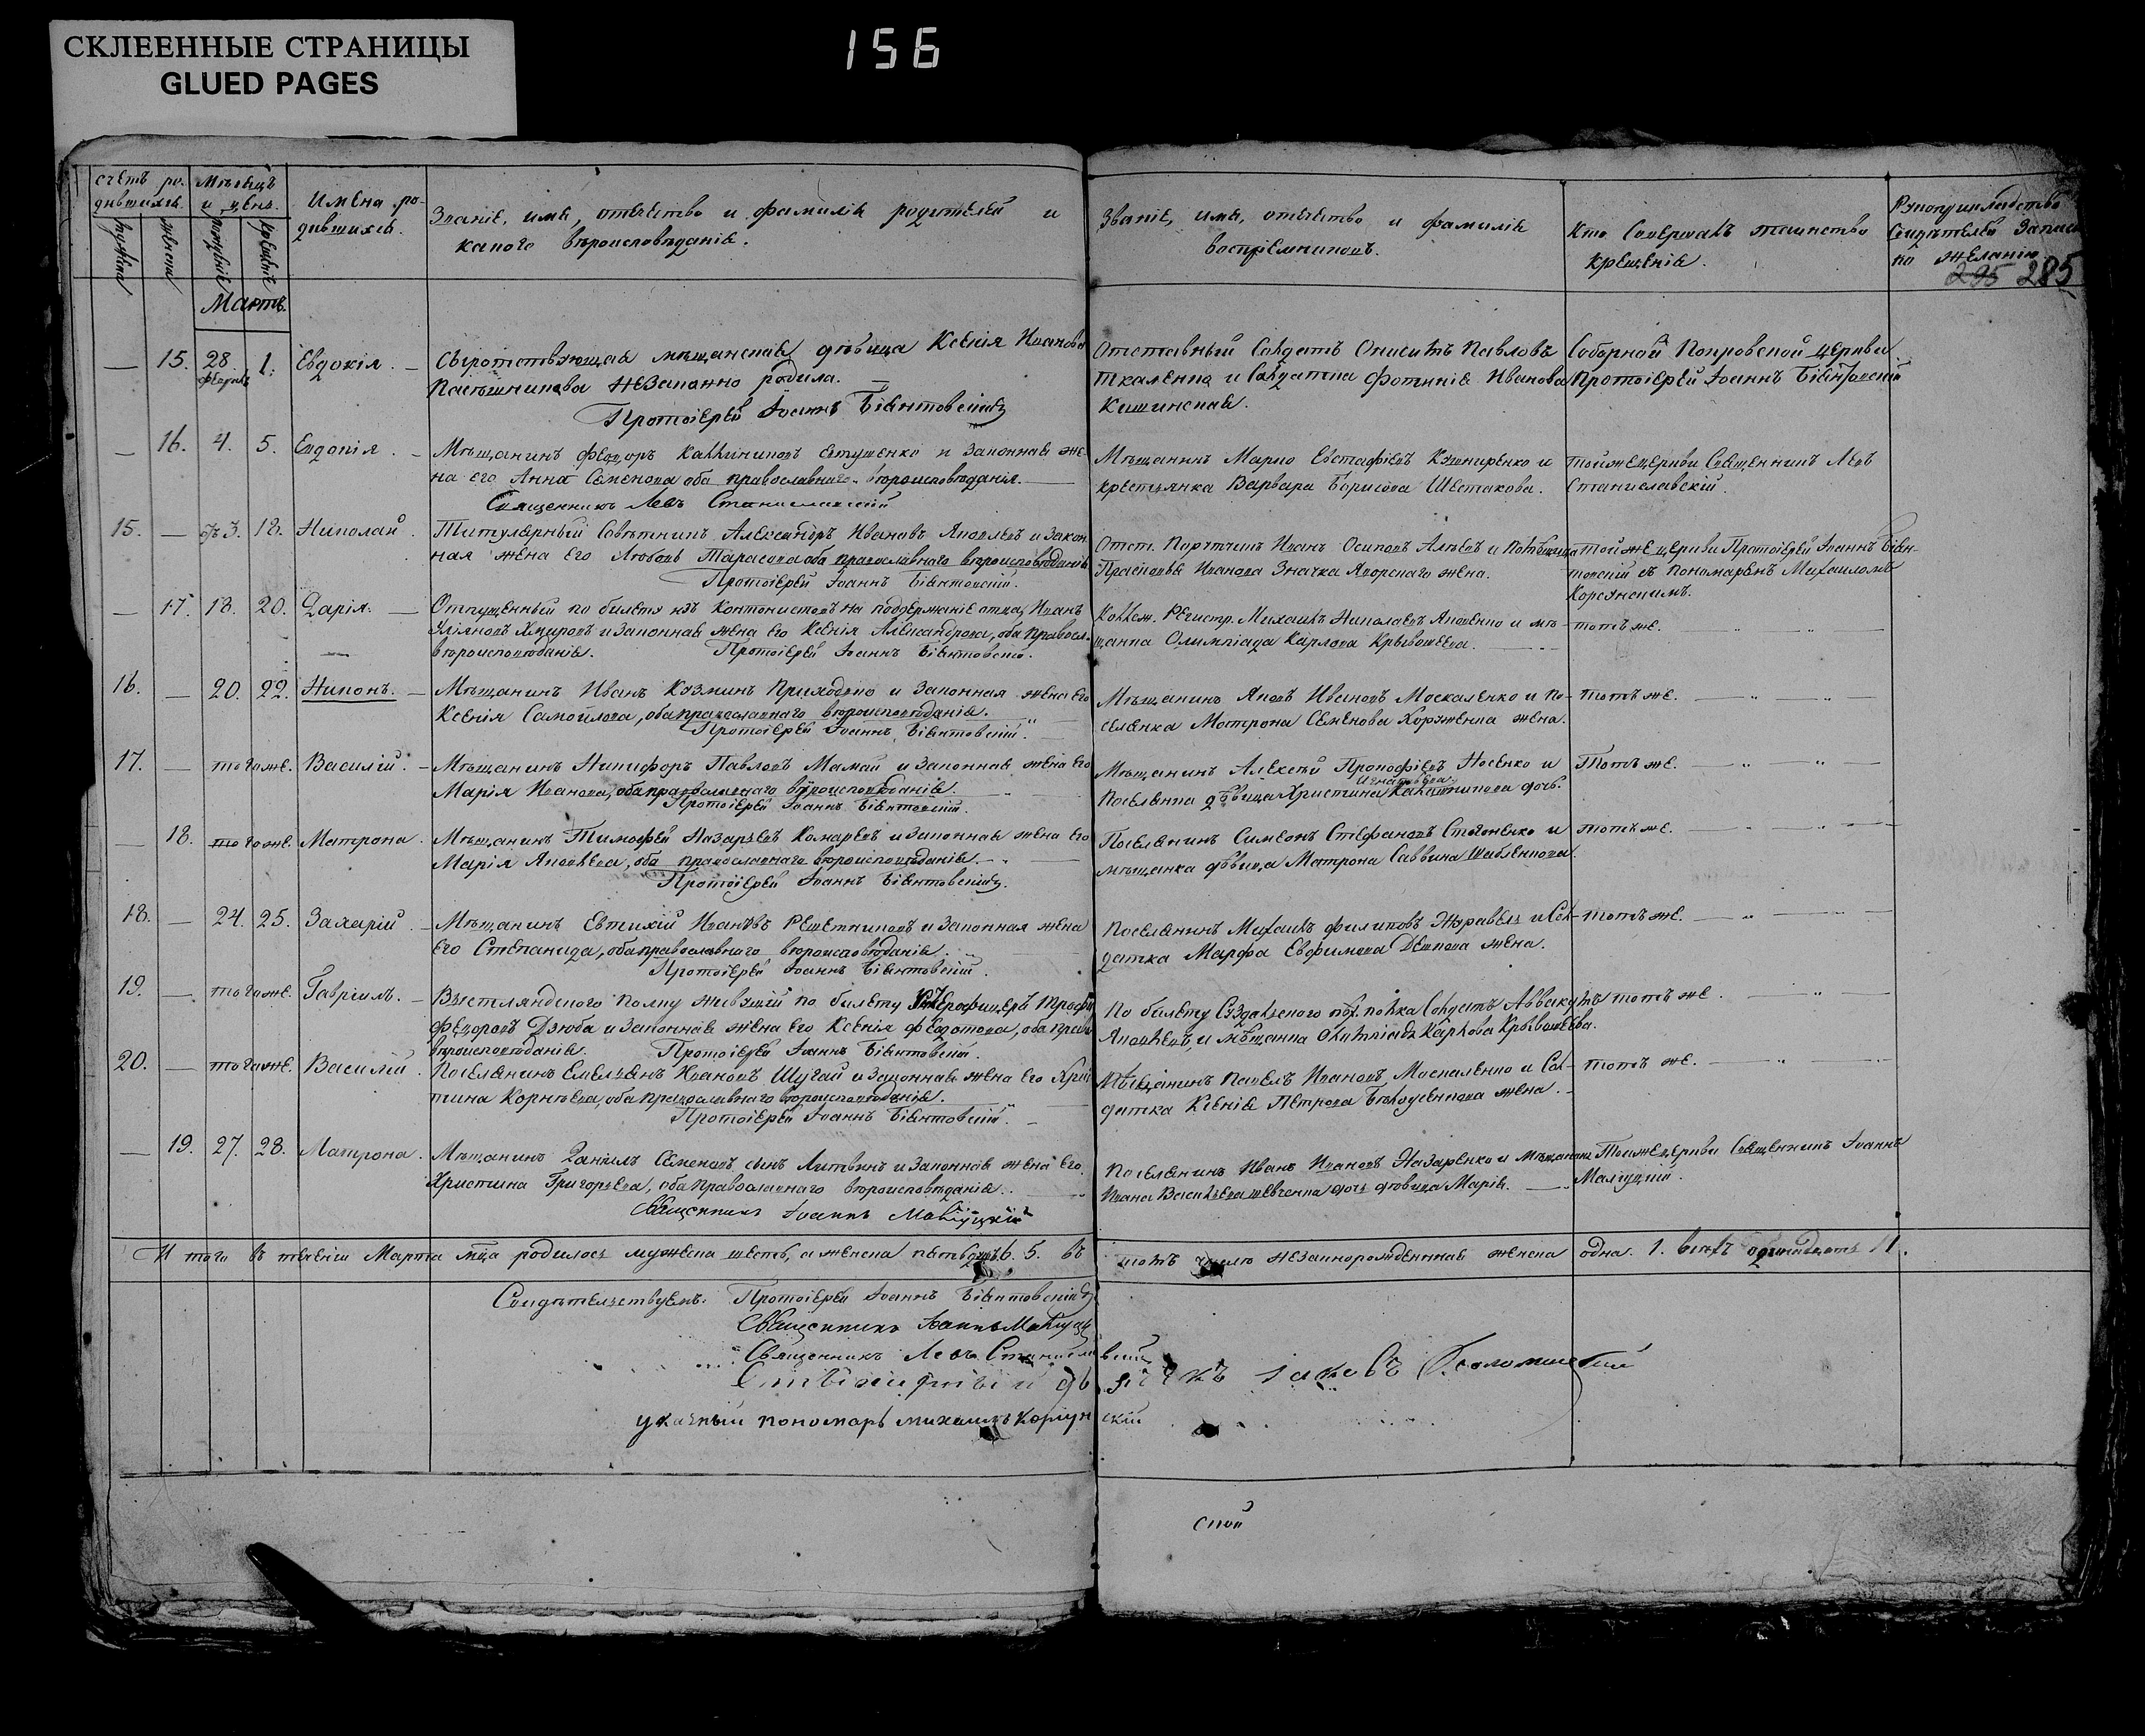 СКЛЕЕННЫЕ СТРАНИЦЫ
GLUED PAGES
156
счетъ ро-
дившихъ.
Мѣсяцъ
и день.
Имена ро-
дившихъ.
Званіе, имя, отечество и фамилія родителей и
какого вѣроисповѣданія.
Званіе, имя, отечество и фамилія
воспріемниковъ.
Кто совершалъ таинство
крещенія.
Рукоприкладство
свидѣтелей записи
по желанію
295 285
Мартъ.
— 15. 28 февраля 1. Евдокія. —
Сыротствующая мѣщанская дѣвица Ксенія Иванова
незаконно родила. —
Протоіерей Іоаннъ Біентовскій
Отставный Солдатъ Онисимъ Павловъ
Ткаленко и Солдатка Фотинія Иванова
Кишинская.
Соборной Покровской церкви
Протоіерей Іоаннъ Біентовскій
— 16. 4. 5. Евдокія. —
Мѣщанинъ Федоръ Каллиниковъ Евтушенко и законная же-
на его Анна Семенова оба православнаго вѣроисповѣданія.
Священникъ Левъ Станиславскій
Мѣщанинъ Марко Евстафіевъ Кушниренко и
крестьянка Варвара Борисова Шестакова.
той же церкви Священникъ Левъ
Станиславскій.
15. — 3. 18. Николай.
Титулярный Совѣтникъ Александръ Ивановъ Яковлевъ и закон
ная жена его Любовь Тарасова оба православнаго вѣроисповѣданія
Протоіерей Іоаннъ Біентовскій.
Отст. Поручикъ Иванъ Осиповъ
Прасковья Иванова Значка Яворскаго жена.
той же церкви Протоіерей Іоаннъ Біен-
товскій съ пономаремъ Михаиломъ
Корсунскимъ.
— 17. 18. 20. Дарія. —
Отпущенный по билету изъ Кантонистовъ на поддержаніе отца, Иванъ
и законная жена его Ксенія Александрова, оба правосл.
вѣроисповѣданія. Протоіерей Іоаннъ Біентовскій.
Коллеж. Регистр. Михаилъ Николаевъ Яковенко и мѣ-
щанка Олимпіада Карлова Крывошеева.
тотъ же.
16. — 20. 22. Никонъ. —
Мѣщанинъ Иванъ Козминъ Приходько и законная жена его
Ксенія Самойлова, оба православнаго вѣроисповѣданія.
Протоіерей Іоаннъ Біентовскій.
Мѣщанинъ Яковъ Ивановъ Москаленко и по-
селянка Матрона Семенова Коржченка жена.
тотъ же.
17. — того же. Василій. —
Мѣщанинъ Никифоръ Павловъ Мамай и законная жена его
Марія Иванова, оба православнаго вѣроисповѣданія.
Протоіерей Іоаннъ Біентовскій.
Мѣщанинъ Алексѣй Прокофіевъ Носенко и
Игнатьева
поселянка дѣвица Христина Калатникова дочь.
Тотъ же.
— 18. того же. Матрона.
Мѣщанинъ Тимофей Назарьевъ Комаревъ и законная жена его
Марія Яковлева, оба православнаго вѣроисповѣданія.
Протоіерей Іоаннъ Біентовскій.
Поселянинъ Симеонъ Стефановъ Стогоненко и
мѣщанка дѣвица Матрона Саввина
тотъ же.
18. — 24. 25. Захарій. —
Мѣщанинъ Евтихій Ивановъ Решетниковъ и законная жена
его Степанида, оба православнаго вѣроисповѣданія.
Протоіерей Іоаннъ Біентовскій.
Поселянинъ Михаилъ Филиповъ Журавель и Сол-
датка Марфа Евфимова жена.
тотъ же.
19. — того же. Гавріилъ. —
полку живущій по билету Унтерофицеръ Трофимъ
Федоровъ Дзюба и законная жена его Ксенія Федотова, оба прав.
вѣроисповѣданія. Протоіерей Іоаннъ Біентовскій.
По билету Суздальского пѣх. полка Солдатъ Аввакумъ
Яковлевъ, и мѣщанка Олимпіада Карлова Крывошеева.
тотъ же.
20. — того же. Василій.
Поселянинъ Емельянъ Ивановъ Шугай и законная жена его Хрис
тина Корнѣева, оба православнаго вѣроисповѣданія.
Протоіерей Іоаннъ Біентовскій.
Мѣщанинъ Павелъ Ивановъ Москаленко и Сол-
датка Ксенія Петрова жена.
тотъ же.
— 19. 27. 28. Матрона.
Мѣщанинъ Даніилъ Семеновъ сынъ Литвинъ и законная жена его
Христина Григорьева, оба православнаго вѣроисповѣданія.
Священникъ Іоаннъ
Поселянинъ Иванъ Ивановъ Назаренко и мѣщанина
Ивана Васильева Шевченка дочь дѣвица Марія.
Той же церкви Священникъ Іоаннъ
Итого въ теченіи Марта м-ца родилось мужеска шесть, а женска пять 6. 5. въ
томъ числѣ незаконорожденная женска одна. 1. всѣхъ одинадцать 11.
Свидѣтельствуемъ: Протоіерей Іоаннъ Біентовскій
Священникъ Іоаннъ
Священникъ Левъ Станиславскій
Іаковъ
указный пономарь Михаилъ Корсунскій
ской